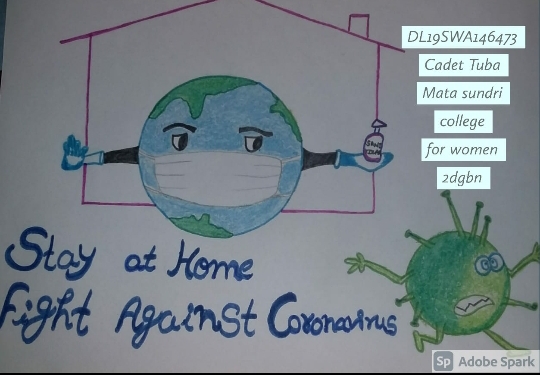 DL19SWA146473
Cadet Tuba
Mata sundri
college
for women
2dgbn
SANI
TIZER
Stay at Home
Fight Against Coronavirus
Sp Adobe Spark